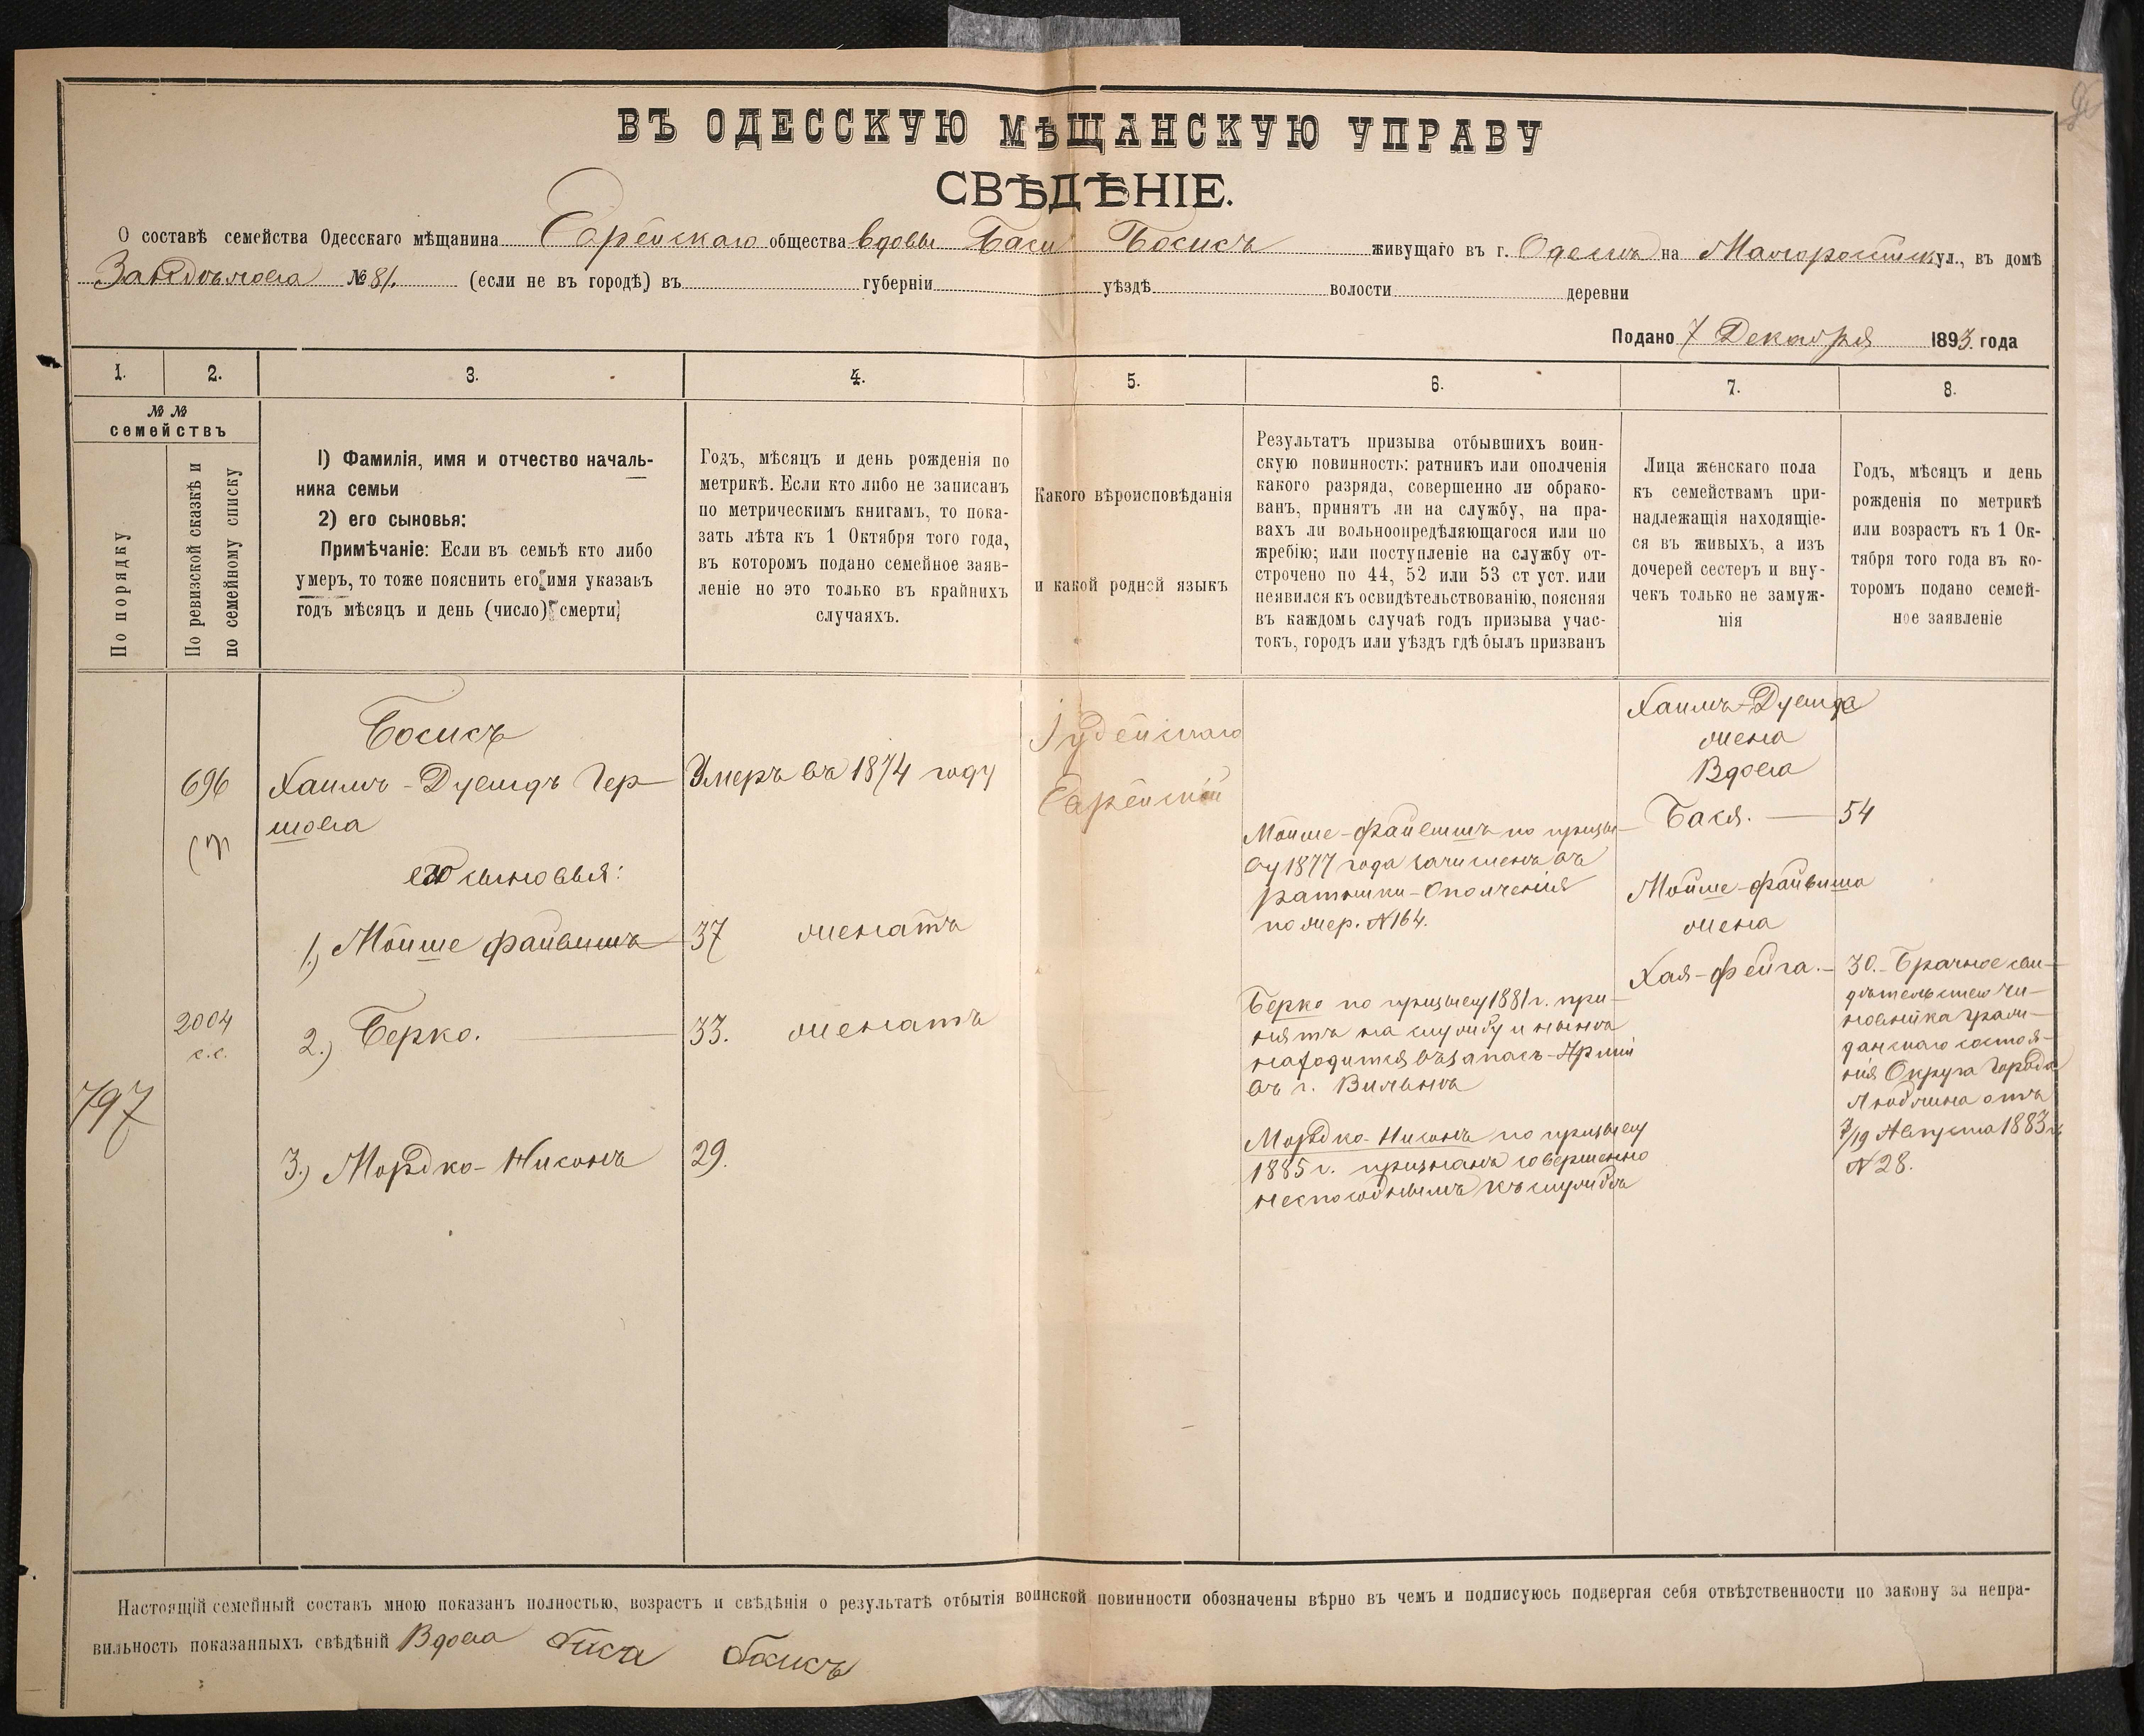 ВЪ ОДЕССКУЮ МѢЩАНСКУЮ УПРАВУ
СВѢДѢНІЕ.
О составѣ семейства Одесскаго мѣщанина Еврейскаго общества вдовы Баси Босисъ живущаго въ г. Одессѣ на Малоросійск ул., въ домѣ
№ 81. (если не въ городѣ) въ губерніи уѣздѣ волости деревни
Подано 7 Декабря 1893 года
1. 2. 3. 4. 5. 6. 7. 8.
№ №
семействъ
По порядку
По ревизской сказкѣ и
по семейному списку
1) Фамилія, имя и отчество началь-
ника семьи
2) его сыновья:
Примѣчаніе: Если въ семьѣ кто либо
умеръ, то тоже пояснить его имя указавъ
годъ мѣсяцъ и день (число) смерти;
Годъ, мѣсяцъ и день рожденія по
метрикѣ. Если кто либо не записанъ
по метрическимъ книгамъ, то пока-
зать лѣта къ 1 Октября того года,
въ которомъ подано семейное заяв-
леніе но это только въ крайнихъ
случаяхъ.
Какого вѣроисповѣданія
и какой родной языкъ
Результатъ призыва отбывшихъ воин-
скую повинность: ратникъ или ополченія
какого разряда, совершенно ли обрако-
ванъ, принятъ ли на службу, на пра-
вахъ ли вольноопредѣляющагося или по
жребію; или поступленіе на службу от-
строчено по 44, 52 или 53 ст уст. или
неявился къ освидѣтельствованію, поясняя
въ каждомъ случаѣ годъ призыва учас-
токъ, городъ или уѣздъ гдѣ былъ призванъ
Лица женскаго пола
къ семействамъ при-
надлежащія находящіе-
ся въ живыхъ, а изъ
дочерей сестеръ и вну-
чекъ только не замуж-
нія
Годъ, мѣсяцъ и день
рожденія по метрикѣ
или возрастъ къ 1 Ок-
тября того года въ ко-
торомъ подано семей-
ное заявленіе
797
696
2004
с.с.
Босисъ
Хаимъ-Дувидъ Гер
шова
его сыновья:
1.) Мойше Файвишъ
2.) Берко.
3.) Мордко-Нисонъ
Умеръ въ 1874 году
37 женатъ
33. женатъ
29.
Іудейскаго
Еврейскій
Мойше-Файвишъ по призы-
ву 1877 года зачисленъ въ
ратники-Ополченія
по жер. № 164.
Берко по призыву 1881 г. при-
нятъ на службу и нынѣ
находится въ запасъ-Арміи
въ г. Вильнѣ
Мордко-Нисонъ по призыву
1885 г. признанъ совершенно
неспособнымъ къ службѣ
Хаимъ-Дувида
жена
Вдова
Бася.
Мойше-Файвиша
жена
Хая-Фейга.
54
30. Брачное сви-
дѣтельство чи-
новника граж-
данскаго состоя-
нія Округа Города
Люблина отъ
7/19 Августа 1883 г.
№ 28.
Настоящій семейный составъ мною показанъ полностью, возрастъ и свѣдѣнія о результатѣ отбытія воинской повинности обозначены вѣрно въ чемъ и подписуюсь подвергая себя отвѣтственности по закону за непра-
вильность показанныхъ свѣдѣній Вдова Бися Босисъ